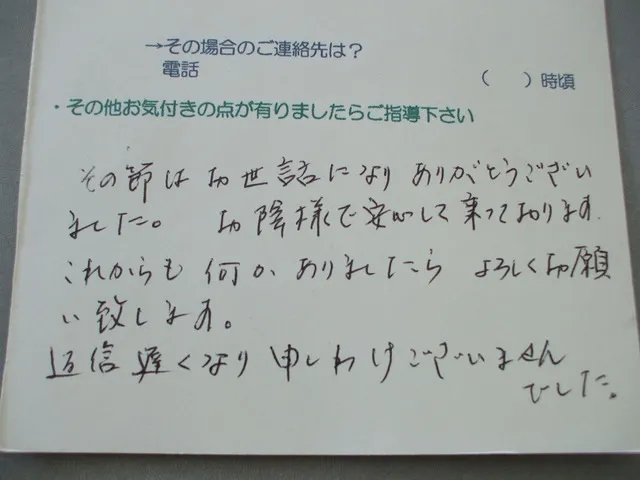 →その場合のご連絡先は?
電話
( )時頃
・その他お気付きの点が有りましたらご指導下さい
その節はお世話になりありがとうござい
ました。 お陰様で安心して乗っております。
これからも何かありましたら よろしくお願
い致します。
返信遅くなり申しわけございません
でした。